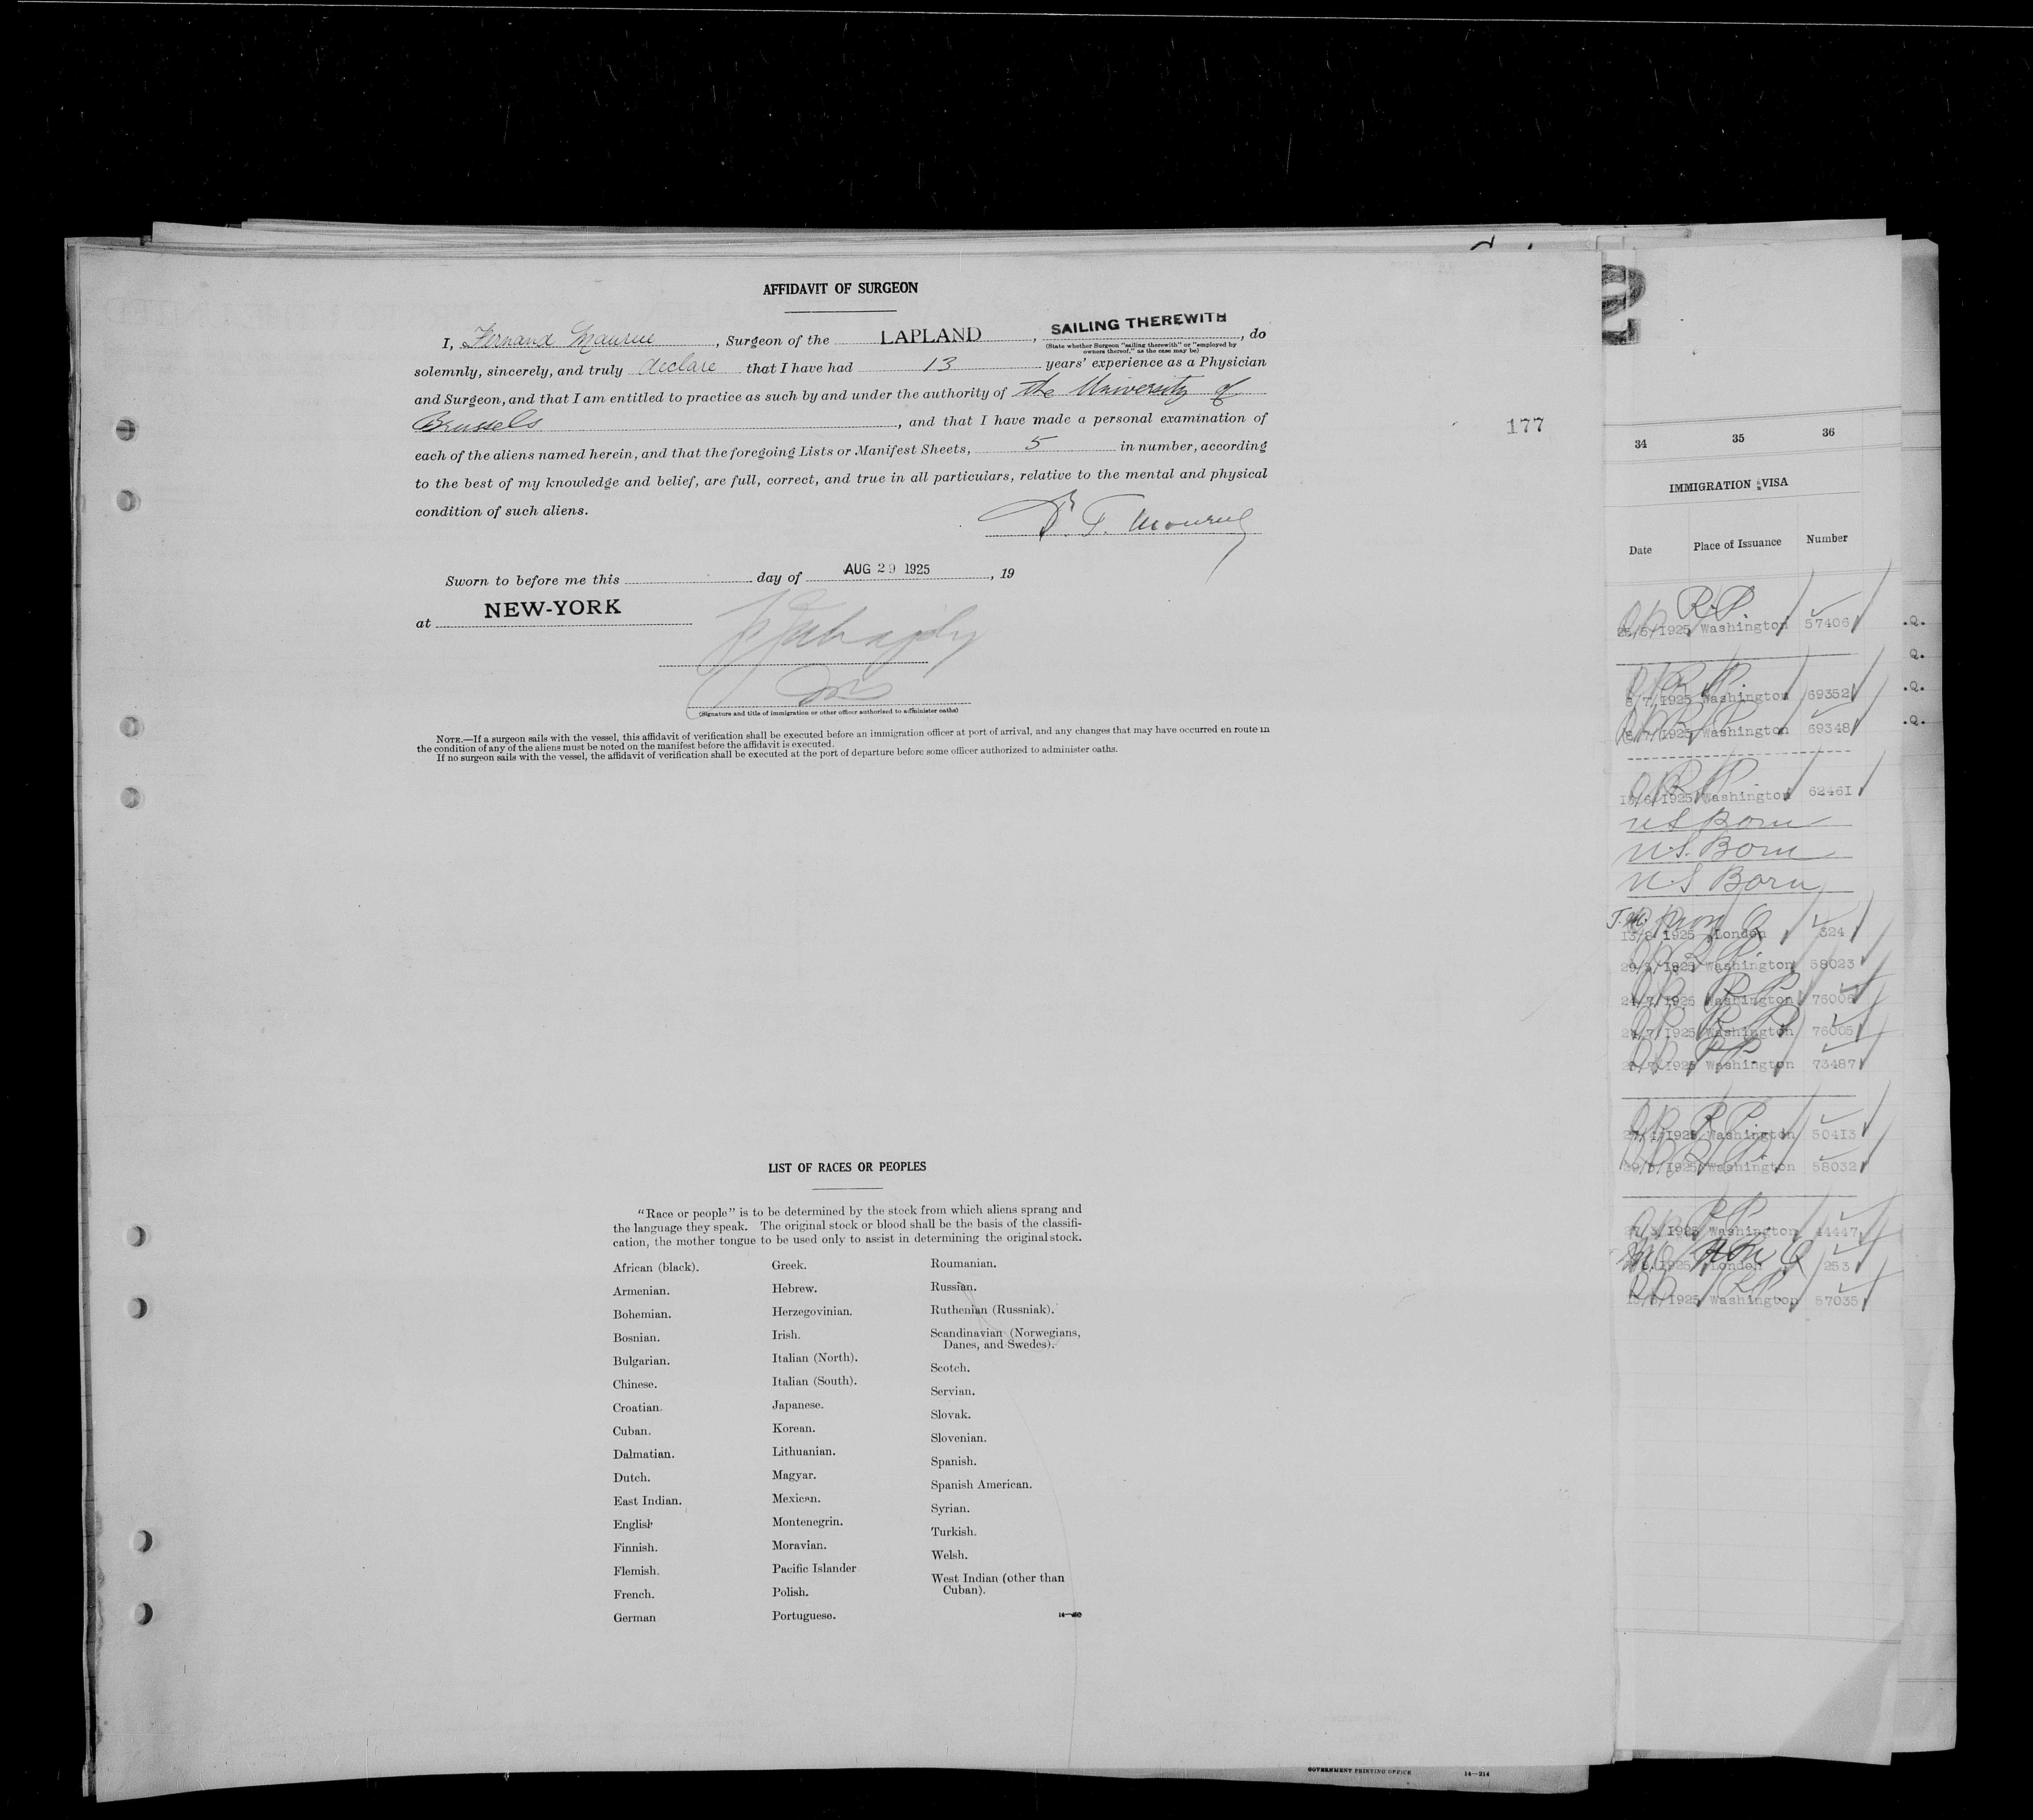 AFFIDAVIT OF SURGEON
I, Fernand Maurice, Surgeon of the LAPLAND, SAILING THEREWITH, do
(State whether Surgeon "sailing therewith" or "employed by
owners thereof," as the case may be)
solemnly, sincerely, and truly declare that I have had 13 years' experience as a Physician
and Surgeon, and that I am entitled to practice as such by and under the authority of the University of
Brussels, and that I have made a personal examination of
each of the aliens named herein, and that the foregoing Lists or Manifest Sheets, 5 in number, according
to the best of my knowledge and belief, are full, correct, and true in all particulars, relative to the mental and physical
condition of such aliens.
Sworn to before me this day of AUG 29 1925, 19
at NEW-YORK
(Signature and title of immigration or other officer authorized to administer oaths)
NOTE.—If a surgeon sails with the vessel, this affidavit of verification shall be executed before an immigration officer at port of arrival, and any changes that may have occurred en route in
the condition of any of the aliens must be noted on the manifest before the affidavit is executed.
If no surgeon sails with the vessel, the affidavit of verification shall be executed at the port of departure before some officer authorized to administer oaths.
LIST OF RACES OR PEOPLES
"Race or people" is to be determined by the stock from which aliens sprang and
the language they speak. The original stock or blood shall be the basis of the classifi-
cation, the mother tongue to be used only to assist in determining the original stock.
African (black).
Armenian.
Bohemian.
Bosnian.
Bulgarian.
Chinese.
Croatian.
Cuban.
Dalmatian.
Dutch.
East Indian.
English
Finnish.
Flemish.
French.
German
Greek.
Hebrew.
Herzegovinian.
Irish.
Italian (North).
Italian (South).
Japanese.
Korean.
Lithuanian.
Magyar.
Mexican.
Montenegrin.
Moravian.
Pacific Islander
Polish.
Portuguese.
Roumanian.
Russian.
Ruthenian (Russniak).
Scandinavian (Norwegians,
Danes, and Swedes).
Scotch.
Servian.
Slovak.
Slovenian.
Spanish.
Spanish American.
Syrian.
Turkish.
Welsh.
West Indian (other than
Cuban).
GOVERNMENT PRINTING OFFICE 14—214
177
34 35 36
IMMIGRATION VISA
Date Place of Issuance Number
R.P.
1925 Washington 57406
1925 Washington 69352
1925 Washington 69348
1925 Washington 62461
U S Born
U.S. Born
U.S Born
13/8/1925 London 324
1925 Washington 58023
1925 Washington 76006
1925 Washington 76005
1925 Washington 73487
1925 Washington 50413
1925 Washington 58032
1925 Washington 44447
1925 London 253
1925 Washington 57035